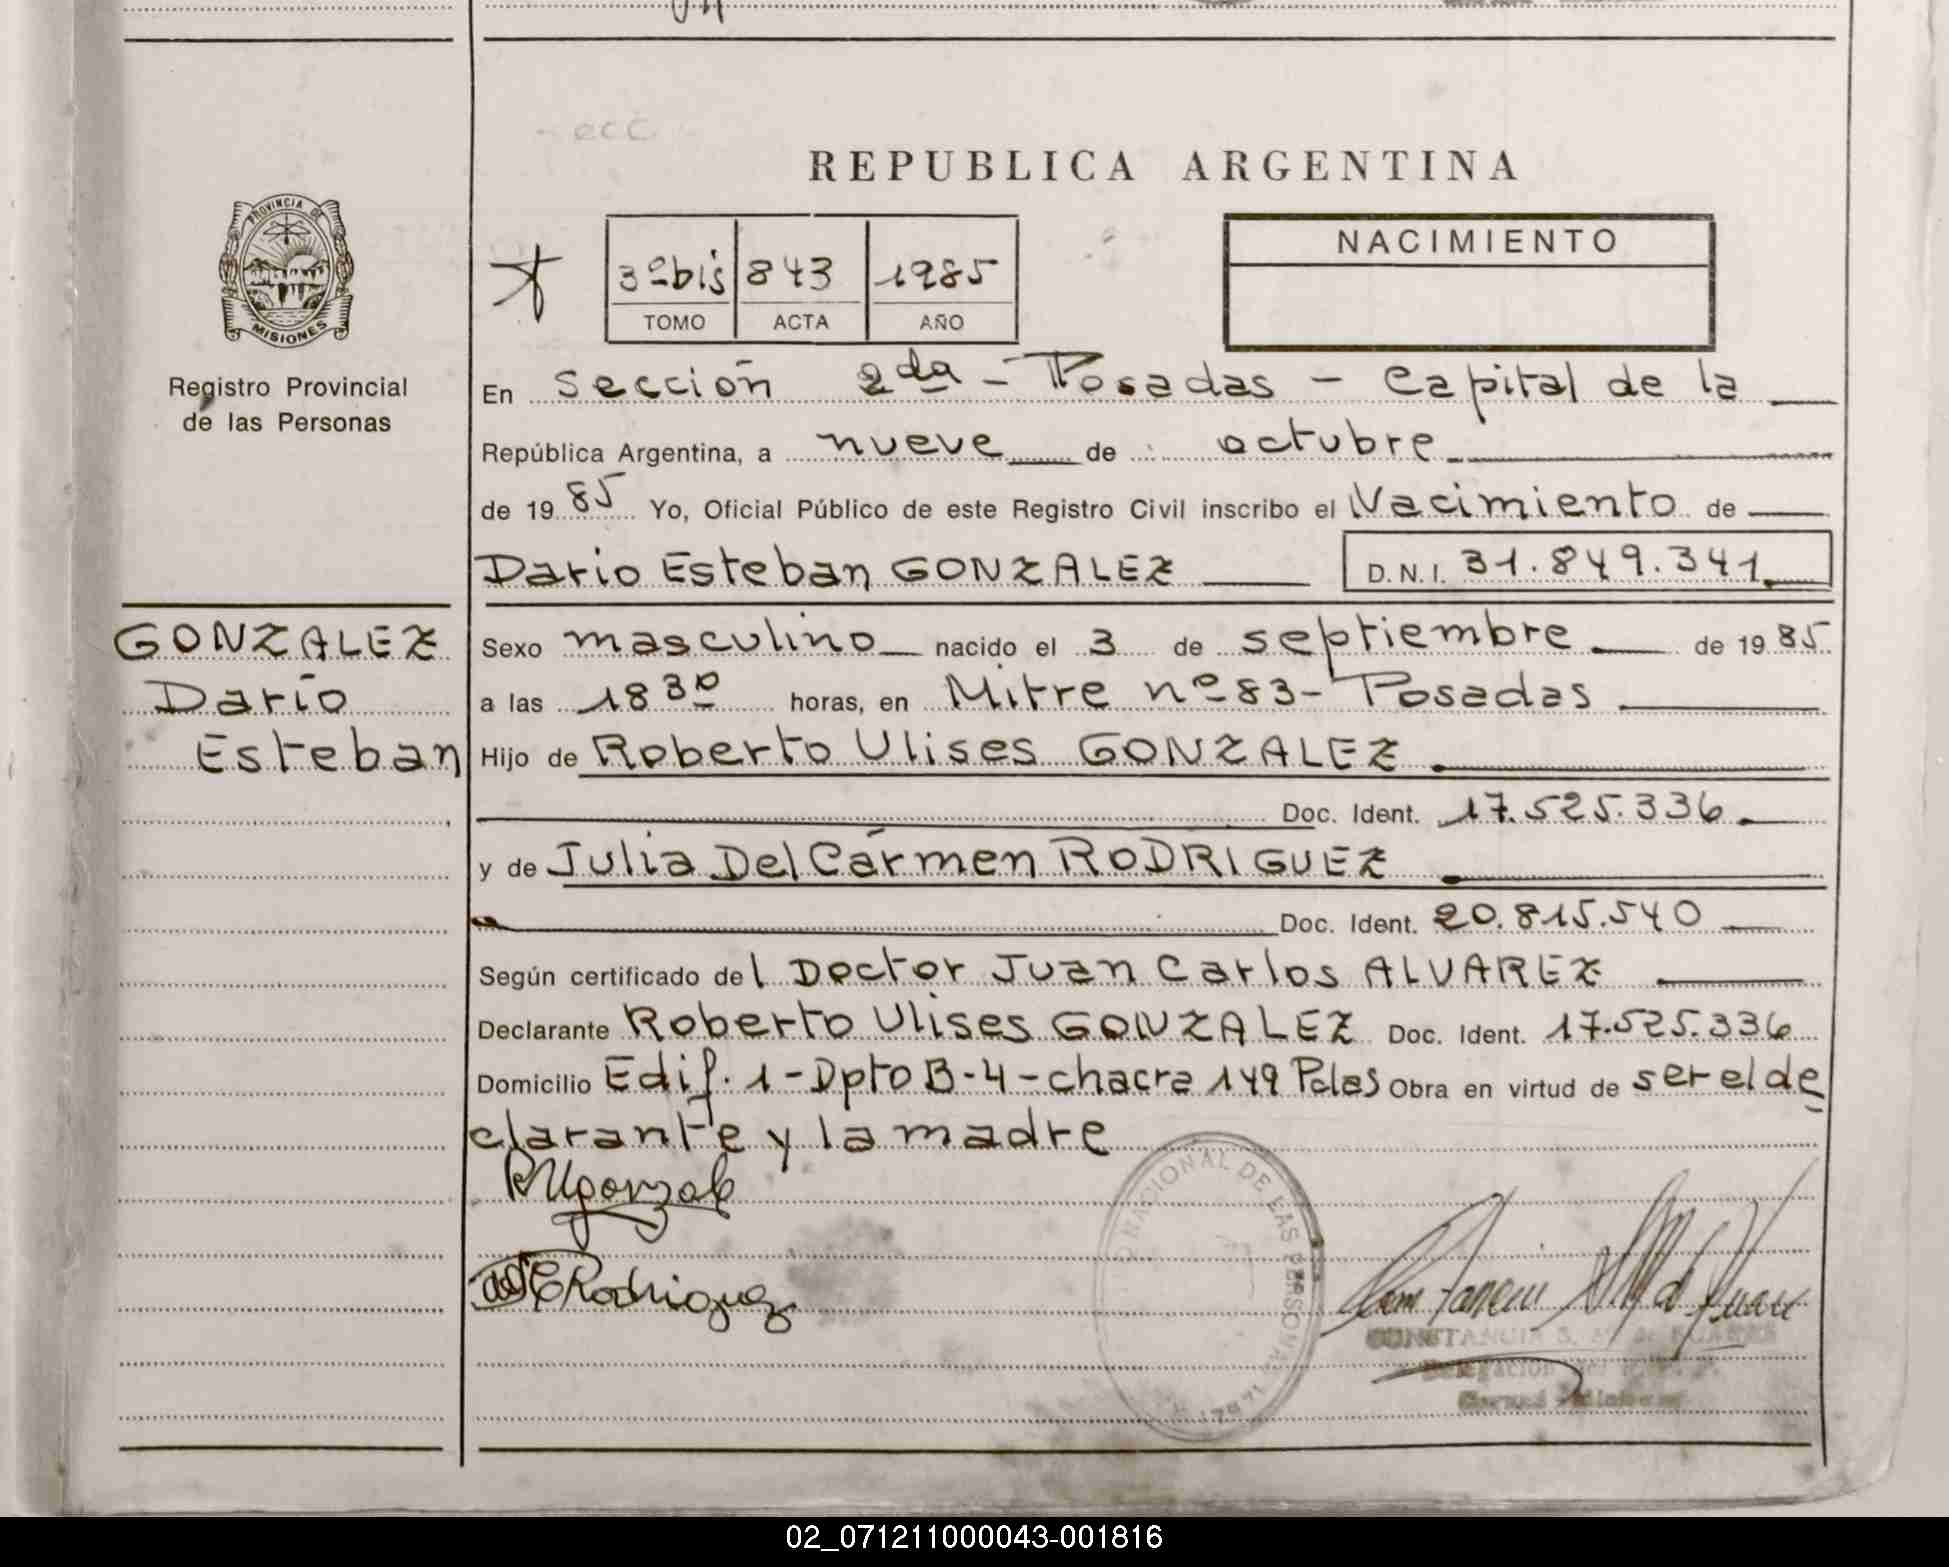 REPUBLICA ARGENTINA
PROVINCIA DE
MISIONES
Registro Provincial
de las Personas
3º bis 843 1985
TOMO ACTA AÑO
NACIMIENTO
En Sección 2da - Posadas - Capital de la
República Argentina, a nueve de octubre
de 1985 Yo, Oficial Público de este Registro Civil inscribo el Nacimiento de
Dario Esteban GONZALEZ D.N.I. 31.849.341
GONZALEZ
Darío
Esteban
Sexo masculino nacido el 3 de septiembre de 1985
a las 18 30 horas, en Mitre nº 83 - Posadas
Hijo de Roberto Ulises GONZALEZ
Doc. Ident. 17.525.336
y de Julia Del Cármen RODRIGUEZ
Doc. Ident. 20.815.540
Según certificado del Doctor Juan Carlos ALVAREZ
Declarante Roberto Ulises GONZALEZ Doc. Ident. 17.525.336
Domicilio Edif. 1 - Dpto B-4 - chacra 149 Pdas Obra en virtud de ser el de
clarante y la madre
RUgonzalez
Rodriguez
NACIONAL DE LAS PERSONAS
CONSTANCIA S.
Delegación
02_071211000043-001816